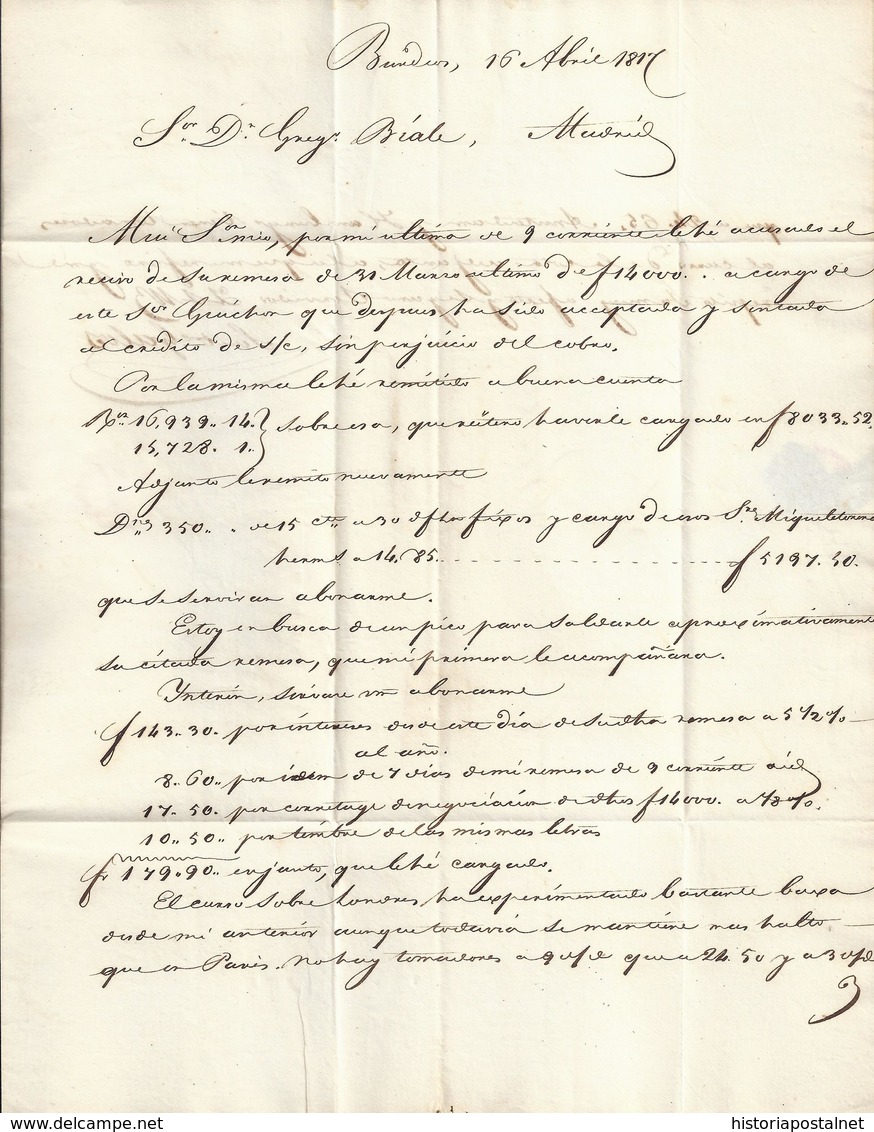 Burdeos, 16 Abril 1817
Sor. Dn. Gregº. Biale, Madrid
Mui Sor. mio, por mi ultima de 9 corriente le hé acusado el
recivo de su remesa de 31 Marzo ultimo de f 14000.. a cargo de
este Sor que despues ha sido acceptada y sentada
al crédito de s/c, sin perjuicio del cobro.
Por la misma le hé remitido a buena cuenta
Ron. 16,939.. 14.. } sobre esa, que reitero haverle cargado en f 8033..52.
15,728. 1..
Adjunto le remito nuevamente
350.. de 15 a 30 d/ fhas fixos y cargo de esos Sres. Miqueletorena
herms. a 14..85. - - - - - - - - - - - - f 5197.50.
que se serviran abonarme.
Estoy en busca de un pico para saldarle aproximativamente
su citada remesa, que mi primera le acompañara.
Ynterin, sirvase vm abonarme
f 143..30. por intereses desde este dia de su dha remesa a 5 1/2 %
al año.
8..60.. por idem de 7 dias de mi remesa de 9 corriente
17..50. por corretage de negociacion de dhos f 14000. a 1/8 %.
10..50.. por timbre de las mismas letras
fr 179..90.. en junto, que le hé cargado.
El curso sobre Londres ha experimentado bastante baxa
desde mi anterior aunque todavia se mantiene mas halto
que en Paris. no hay tomadores a 90/d que a 24.50 y a 30/d
delcampe.net
historiapostalnet